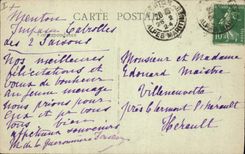 CARTE POSTALE
Menton
Impasse Cabrolles
des 2 Saisons
Nos meilleures
félicitations et
vœux de bonheur
au jeune ménage
nous prions pour
eux et pr vous
tous bien
affectueux souvenirs
M. de la
Monsieur et Madame
Edouard Maistre
Villeneuvette
près Clermont l'Hérault
Hérault
ALPES MARITIMES
10